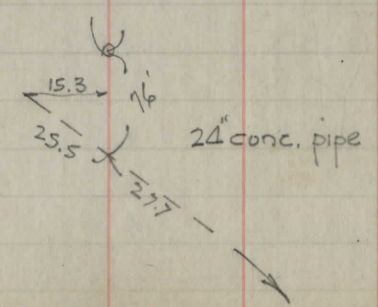 15.3
25.5
24" conc. pipe
27.7